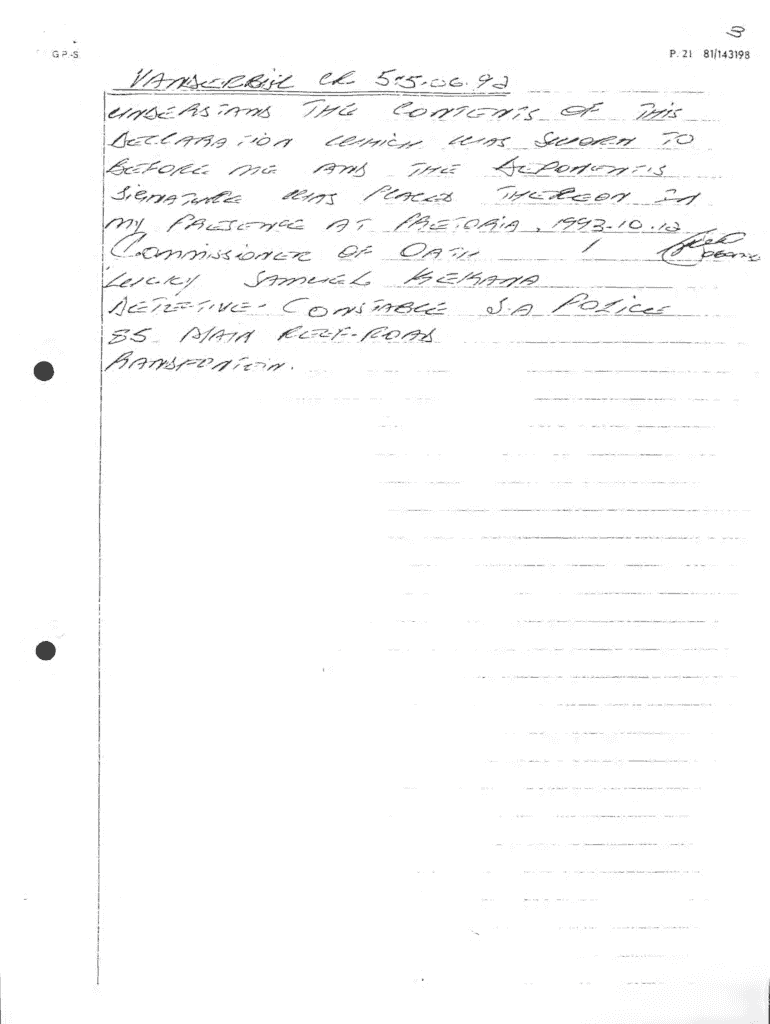 3
G.P.-S
P. 21 81/143198
VANDERBIJL CR. 545.06.92
UNDERSTANDS THE CONTENTS OF THIS
DECLARATION WHICH WAS SWORN TO
BEFORE ME AND THE DEPONENTIS
SIGNATURE WAS PLACED THEREON IN
MY PRESENCE AT PRETORIA, 1993-10-12
COMMISSIONER OF OATH /
LUCKY SAMUEL KEKANA
DETETIVE - CONSTABLE S.A POLICE
85 MAIN REEF-ROAD
RANDFONTEIN.